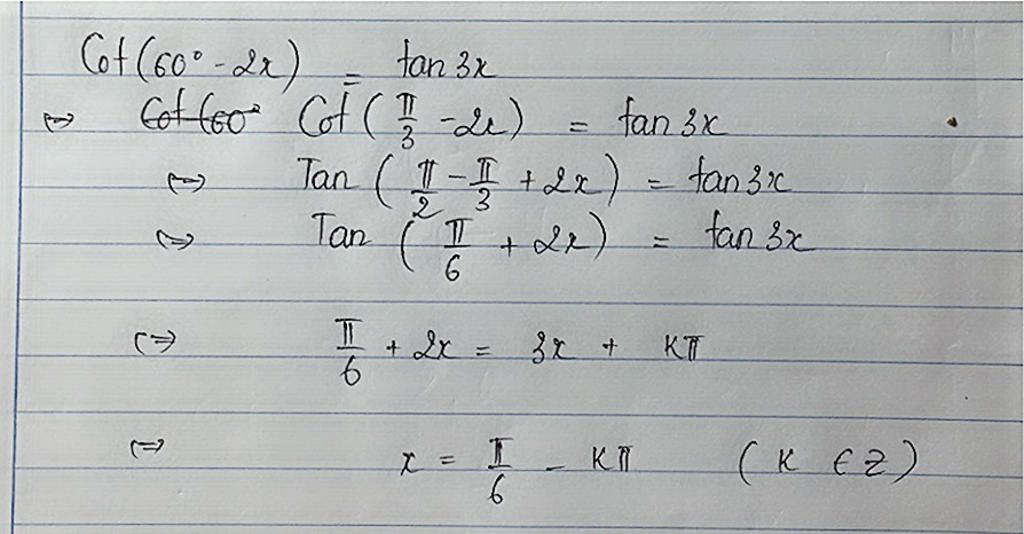 Cot(60° - 2x) = tan 3x
⇔ Cot(60° Cot(π/3 - 2x) = tan 3x
⇔ Tan(π/2 - π/3 + 2x) = tan 3x
⇔ Tan(π/6 + 2x) = tan 3x
⇔ π/6 + 2x = 3x + Kπ
⇔ x = π/6 - Kπ (K ∈ Z)